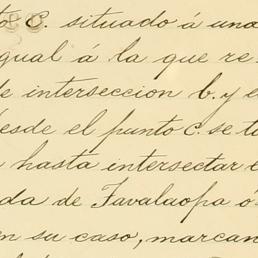 to C. situado á una
igual á la que re-
de interseccion b. y e
desde el punto c. se t
hasta intersectar e
da de Favalaopa ó
en su caso, marcan